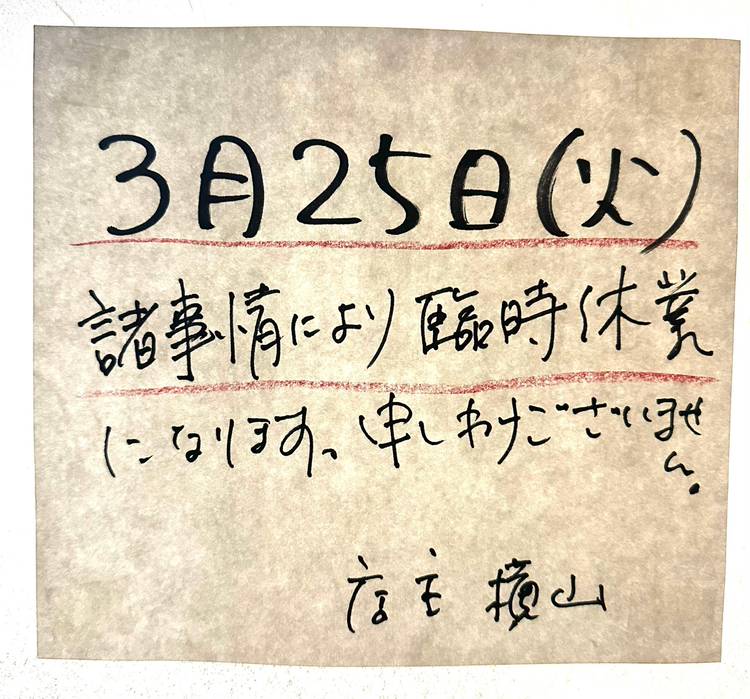 3月25日(火)
諸事情により臨時休業
になります。申しわけございません。
店主 横山